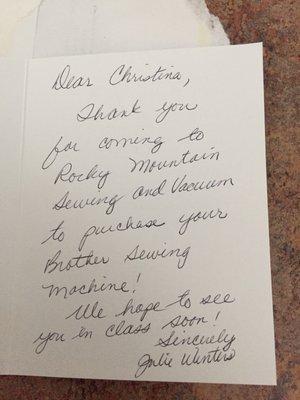 Dear Christina,
Thank you
for coming to
Rocky Mountain
Sewing and Vacuum
to purchase your
Brother Sewing
Machine!
We hope to see
you in class soon!
Sincerely
Julie Winters